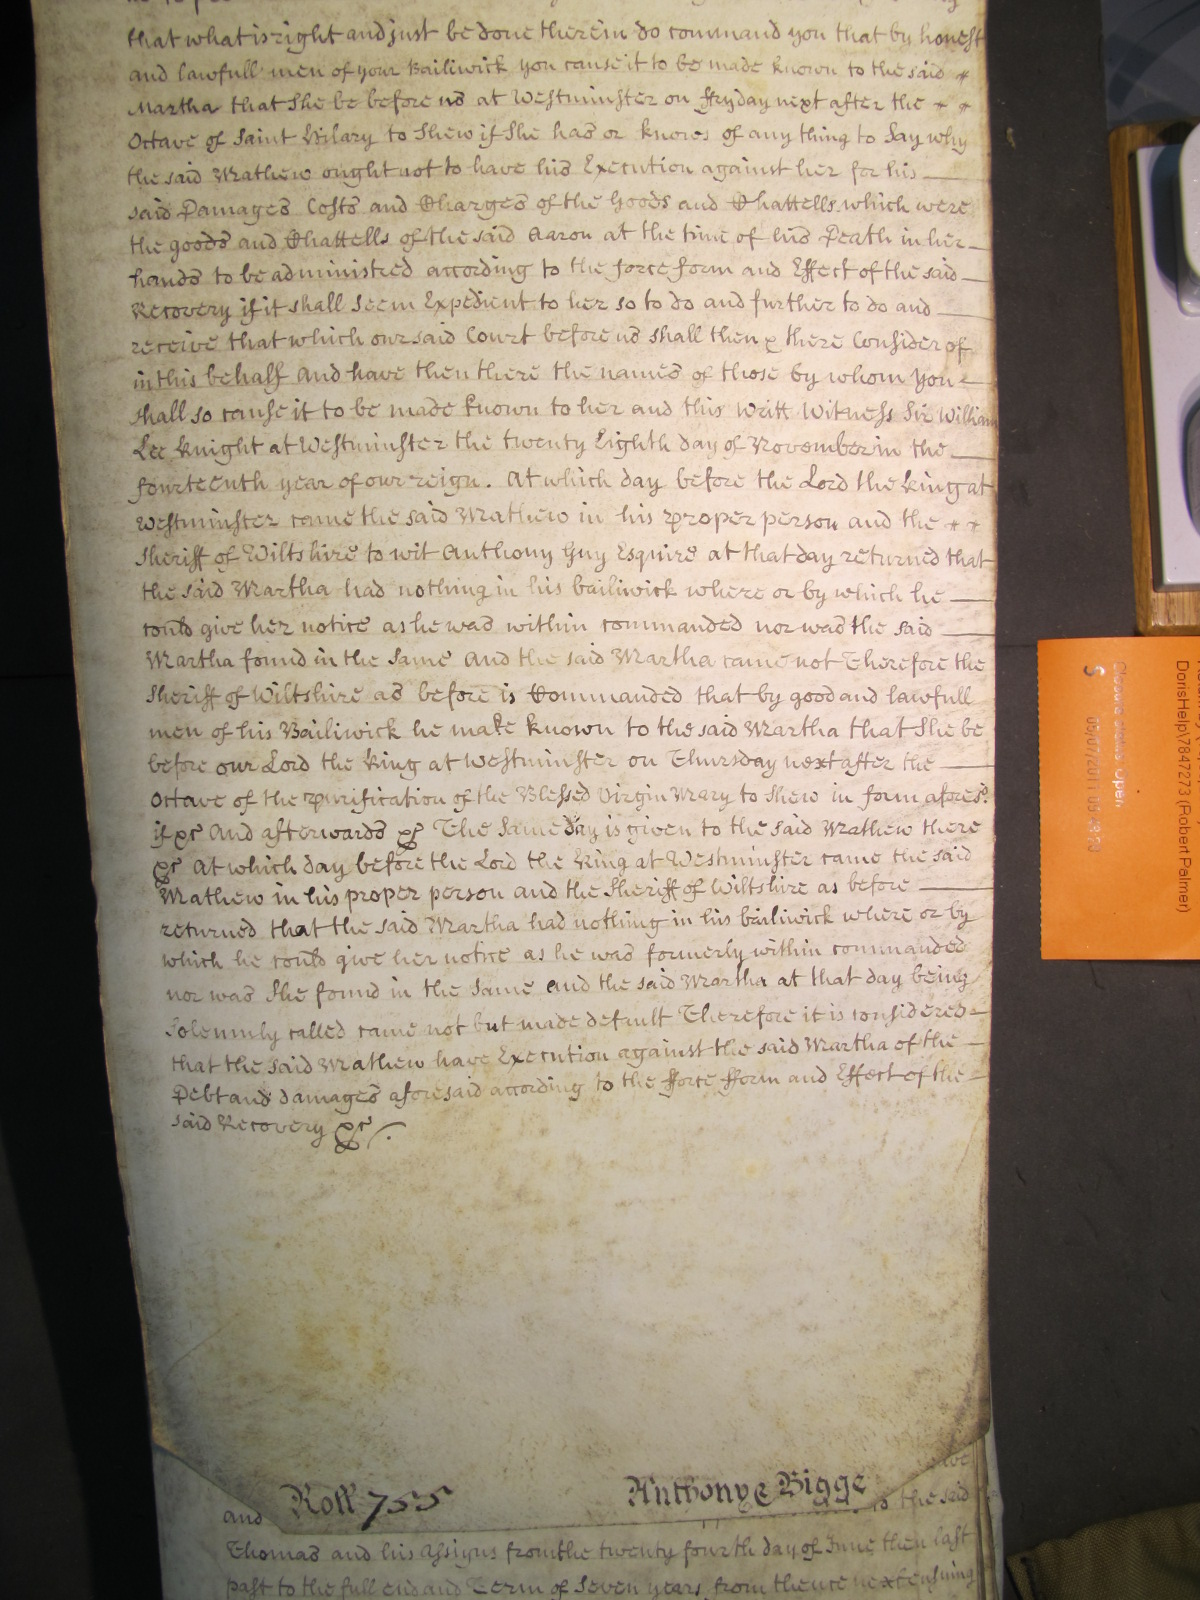 that what is right and just be done therein do command you that by honest
and lawfull men of your Bailiwick you cause it to be made known to the said
Martha that She be before us at Westminster on ffryday next after the
Octave of Saint Hilary to Shew if She has or knows of any thing to Say why
the said Mathew ought not to have his Execution against her for his
said Damages Costs and Charges of the Goods and Chattells which were
the goods and Chattells of the said Aaron at the time of his Death in her
hands to be administred according to the force form and Effect of the said
Recovery if it shall Seem Expedient to her so to do and further to do and
receive that which our said Court before us shall then & there Consider of
in this behalf And have then there the names of those by whom you
shall so cause it to be made known to her and this Writt Witness Sir William
Lee Knight at Westminster the twenty Eighth day of November in the
fourteenth year of our reign. At which day before the Lord the King at
Westminster came the said Mathew in his proper person and the
Sheriff of Wiltshire to wit Anthony Guy Esquire at that day returned that
the said Martha had nothing in his bailiwick where or by which he
could give her notice as he was within commanded nor was the said
Martha found in the Same And the said Martha came not Therefore the
Sheriff of Wiltshire as before is Commanded that by good and lawfull
men of his Bailiwick he make known to the said Martha that She be
before our Lord the King at Westminster on Thursday next after the
Octave of the purification of the Blessed Virgin Mary to Shew in form afores.d
if &c And afterwards &c The Same day is given to the said Mathew there
&c At which day before the Lord the King at Westminster came the said
Mathew in his proper person and the Sheriff of Wiltshire as before
returned that the said Martha had nothing in his bailiwick where or by
which he could give her notice as he was formerly within commanded
nor was She found in the Same And the said Martha at that day being
Solemnly called came not but made default Therefore it is considered
that the said Mathew have Execution against the said Martha of the
Debt and damages aforesaid according to the fforce fform and Effect of the
said Recovery &c
Roll 755
Anthonye Bigge
and
the said
Thomas and his Assigns from the twenty fourth day of June then last
past to the full end and Term of Seven years from thence next ensuing
Closure status: Open
5
DorisHelp\7847273 (Robert Palmer)